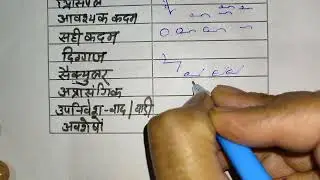 प्रिंसिपल
आवश्यक कदम
सही कदम
दिग्गज
सैक्युलर
अप्रासंगिक
उपनिवेश-वाद/वादी
अवशेषों